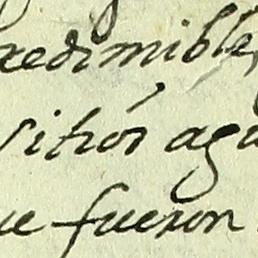 redimible,
sitión agu
ue fueron